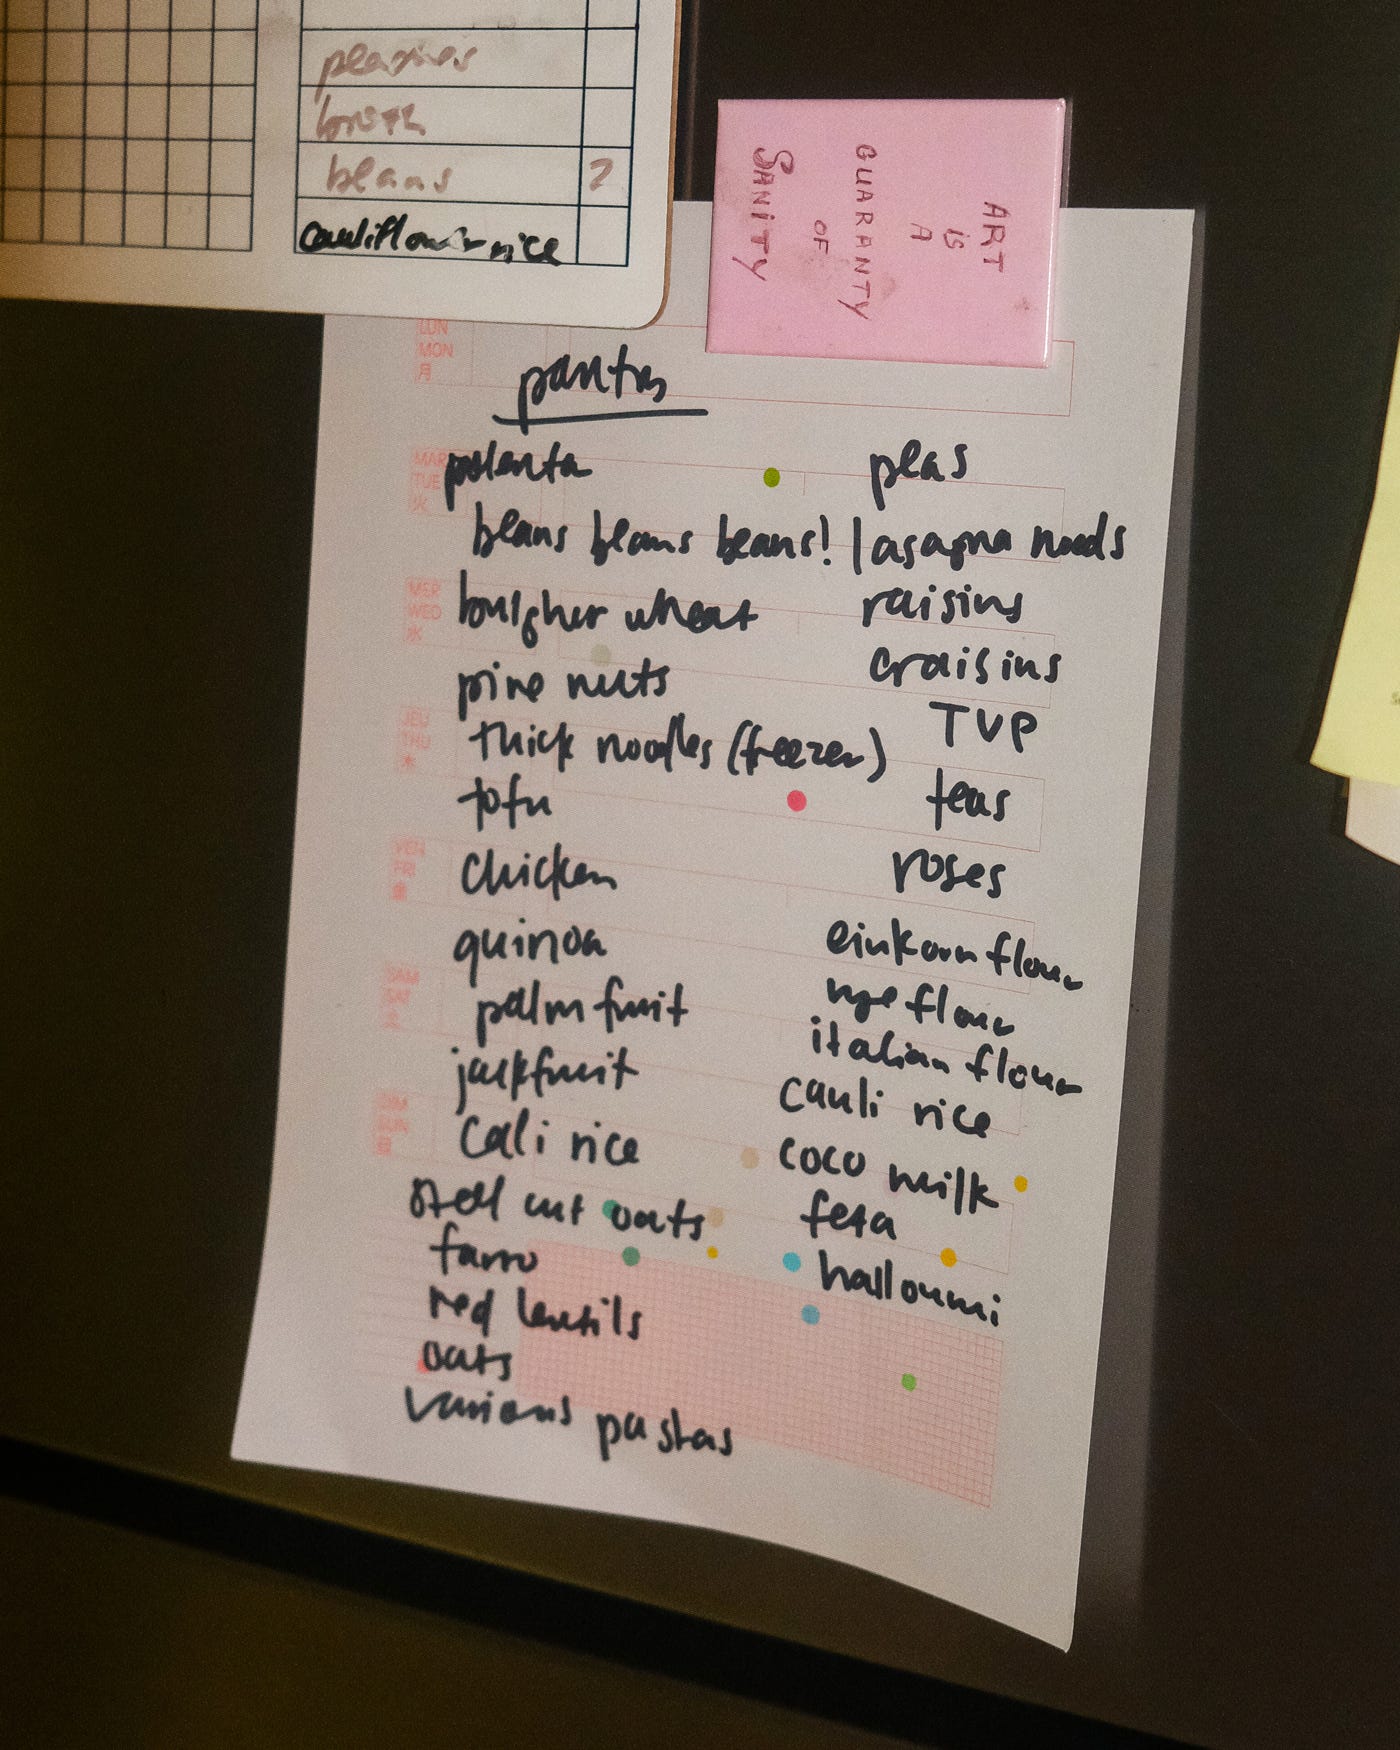 beans 2
cauliflower rice
ART
IS
A
GUARANTY
OF
SANITY
LUN
MON
月
pantry
MAR
TUE
火
polenta
beans beans beans!
MER
WED
水
boulgher wheat
pine nuts
JEU
THU
木
thick noodles (freezer)
tofu
VEN
FRI
金
chicken
quinoa
SAM
SAT
土
palm fruit
jackfruit
DIM
SUN
日
cali rice
steel cut oats
farro
red lentils
oats
various pastas
peas
lasagna noods
raisins
craisins
TVP
teas
roses
einkorn flour
rye flour
italian flour
cauli rice
coco milk
feta
halloumi